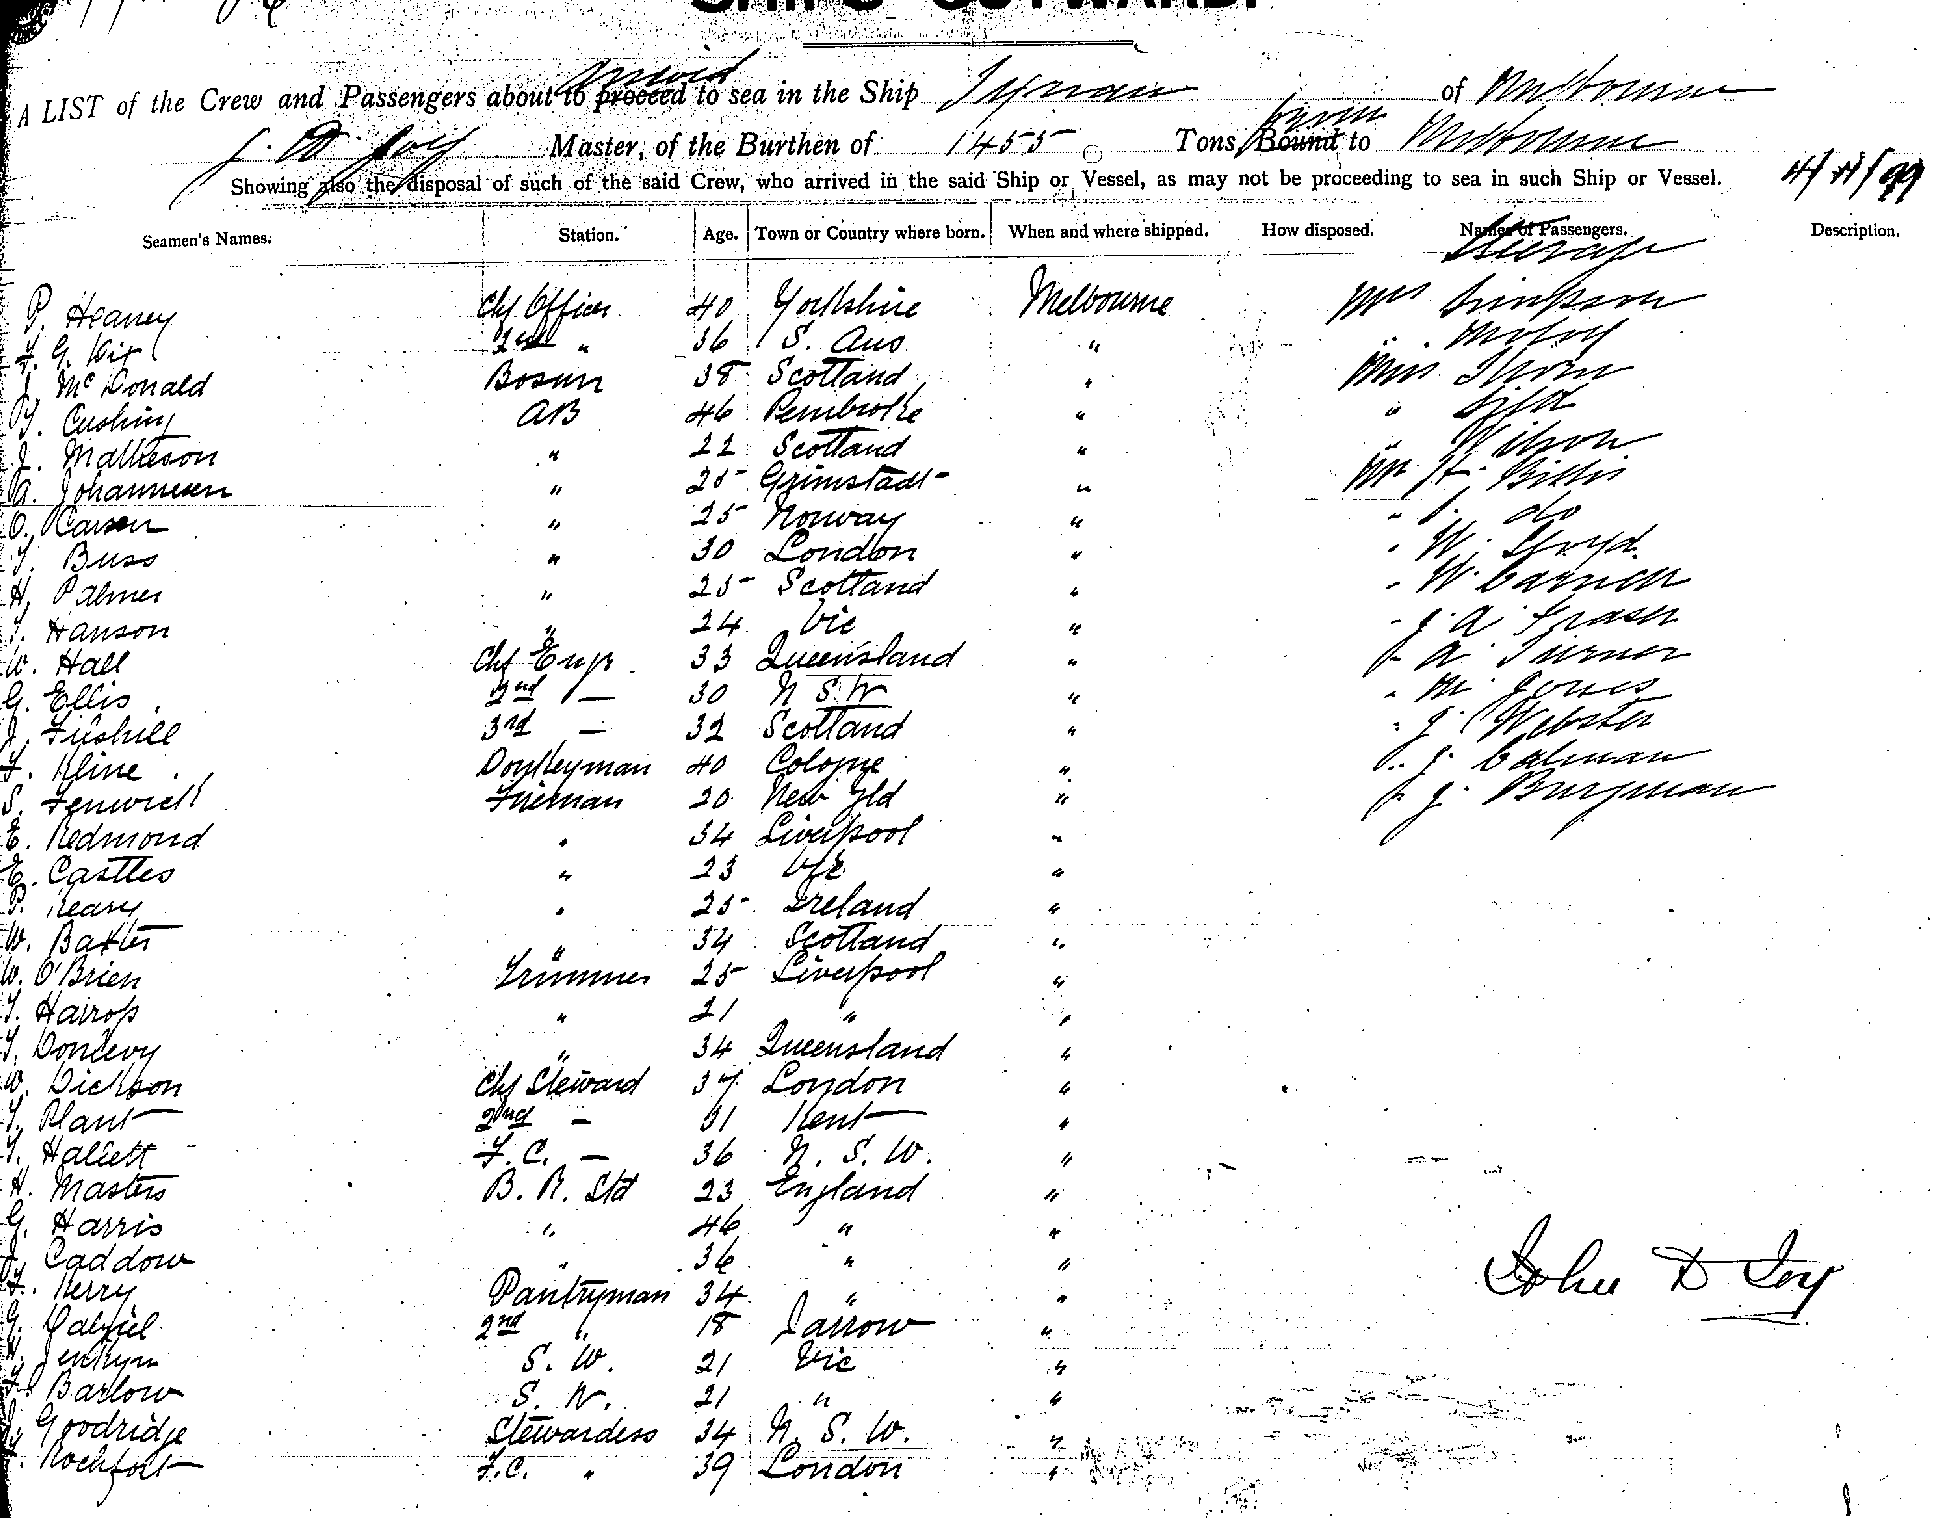 SHIPS OUTWARD.
arrived
A LIST of the Crew and Passengers about to proceed to sea in the Ship Tyrian of Melbourne
from
J. D. Joy Master, of the Burthen of 1455 Tons, Bound to Melbourne
Showing also the disposal of such of the said Crew, who arrived in the said Ship or Vessel, as may not be proceeding to sea in such Ship or Vessel.
Seamen's Names. Station. Age. Town or Country where born. When and where shipped. How disposed. Names of Passengers. Description.
Steerage
P. Heaney Chf Officer 40 Yorkshire Melbourne Mrs Simpson
2nd " 36 S. Aus " "
J. McDonald Bosun 38 Scotland " Miss Thom
T. Cushing AB 46 Pembroke " "
J. Matheson " 22 Scotland " " Wilson
A. Johannesen " 25 Grimstadt " Mr H. Billis
O. Carsen " 25 Norway " " do
T. Buss " 30 London " " W. Lloyd
H. Palmer " 25 Scotland " " W.
T. Hanson " 24 Vic " " J. A. Fraser
W. Hall Chf Engr 33 Queensland " " A. Turner
G. Ellis 2nd — 30 N S.W " " M. Jones
J. 3rd — 32 Scotland " " J. Webster
F. Kline Donkeyman 40 Cologne " " J. Calman
S. Fenwick Fireman 20 New Zld " " J. Burgman
E. Redmond " 34 Liverpool "
E. Castles " 23 Vic "
P. Keary " 25 Ireland "
W. Baxter " 34 Scotland "
W. O'Brien Trimmer 25 Liverpool "
T. Harrop " 21 " "
T. Donlevy " 34 Queensland "
W. Dickson Chf Steward 37 London "
T. Plant 2nd — 31 Kent "
T. Hallett F.C. — 36 N. S. W. "
H. Masters B. R. Std 23 England "
G. Harris " 46 " "
J. Caddow " 36 " "
F. Kerry Pantryman 34 " "
G. Gabriel 2nd " 18 Jarrow "
Jenkyn S. W. 21 Vic "
Barlow S. W. 21 " "
Goodridge Stewardess 34 N. S. W. "
Rochfort F.C. " 39 London "
John D Joy